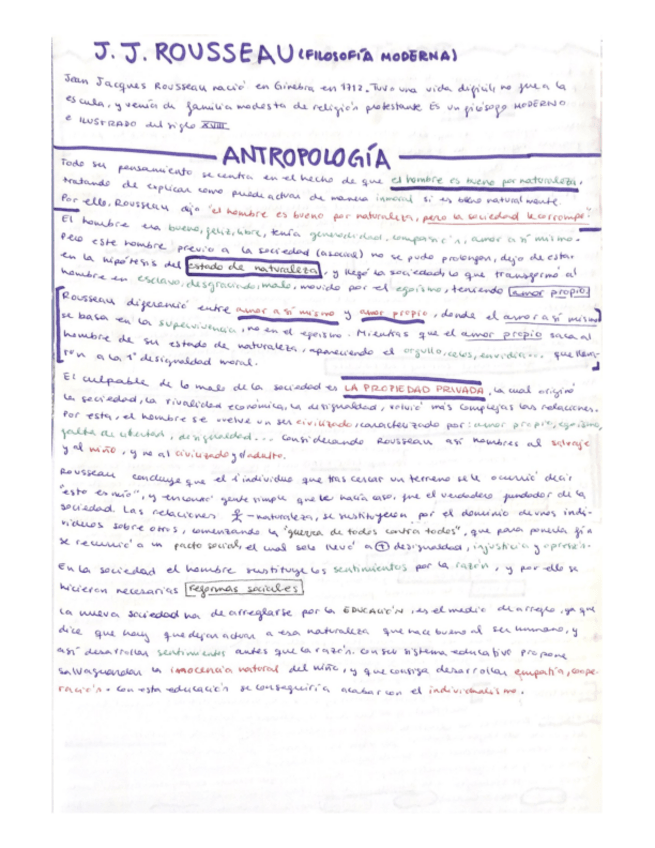 J. J. ROUSSEAU (FILOSOFÍA MODERNA)
Jean Jacques Rousseau nació en Ginebra en 1712. Tuvo una vida difícil, no fue a la
escuela, y venía de familia modesta de religión protestante. Es un filósofo MODERNO
e ILUSTRADO del siglo XVIII.
ANTROPOLOGÍA
Todo su pensamiento se centra en el hecho de que el hombre es bueno por naturaleza,
tratando de explicar como puede actuar de manera inmoral si es bueno naturalmente.
Por ello, Rousseau dijo "el hombre es bueno por naturaleza, pero la sociedad le corrompe".
El hombre era bueno, feliz, libre, tenía generosidad, compasión, amor a sí mismo.
Pero este hombre previo a la sociedad (asocial) no se pudo prolongar, dejo de estar
en la hipótesis del estado de naturaleza, y llegó la sociedad, lo que transformó al
hombre en esclavo, desgraciado, malo, movido por el egoísmo, teniendo amor propio
Rousseau diferenció entre amor a sí mismo y amor propio, donde el amor a sí mismo
se basa en la supervivencia, no en el egoísmo. Mientras que el amor propio saca al
hombre de su estado de naturaleza, apareciendo el orgullo, celos, envidia... que lleva-
ron a la 1ª desigualdad moral.
El culpable de lo malo de la sociedad es LA PROPIEDAD PRIVADA, la cual originó
la sociedad, la rivalidad económica, la desigualdad, volvió más complejas las relaciones.
Por esta, el hombre se vuelve un ser civilizado, caracterizado por: amor propio, egoísmo,
falta de libertad, desigualdad... considerando Rousseau así hombres al salvaje
y al niño, y no al civilizado y adulto.
Rousseau concluye que el 1º individuo que tras cercar un terreno se le ocurrió decir
"esto es mío", y encontró gente simple que le hacía caso, fue el verdadero fundador de la
sociedad. Las relaciones - naturaleza, se sustituyeron por el dominio de unos indi-
viduos sobre otros, comenzando la "guerra de todos contra todos", que para ponerla fin
se recurrió a un pacto social, el cual solo llevó a + desigualdad, injusticia y opresión.
En la sociedad el hombre sustituye los sentimientos por la razón, y por ello se
hicieron necesarias reformas sociales
La nueva sociedad ha de arreglarse por la EDUCACIÓN, es el medio de arreglo, ya que
dice que hay que dejar actuar a esa naturaleza que hace bueno al ser humano, y
así desarrollar sentimientos antes que la razón. Con su sistema educativo propone
salvaguardar la inocencia natural del niño, y que consiga desarrollar empatía, coope-
ración. Con esta educación se conseguiría acabar con el individualismo.